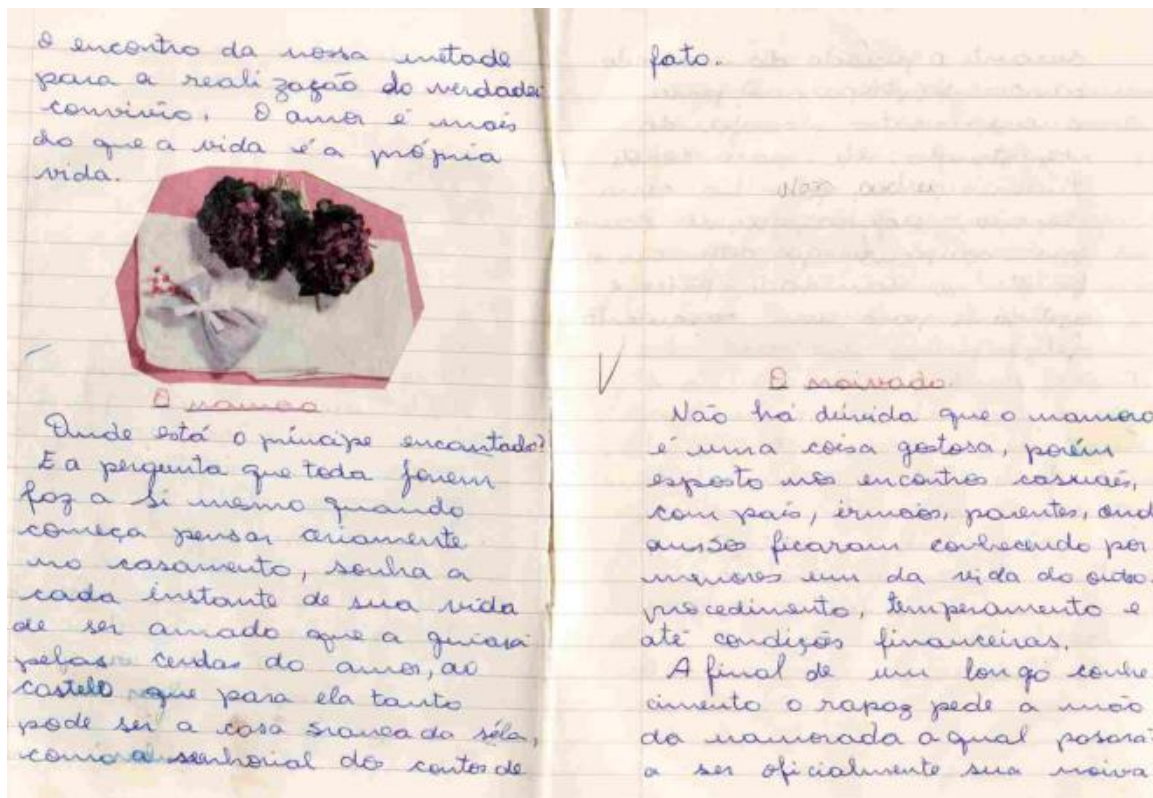 O encontro da nossa metade
para a realização do verdadei
convivio. O amor é mais
do que a vida é a própria
vida.
O namoro
Onde está o príncipe encantado?
E a pergunta que toda jovem
faz a si mesmo quando
começa pensar ceriamente
no casamento, sonha a
cada instante de sua vida
de ser amado que a guiará
pelas cendas do amor, ao
castelo que para ela tanto
pode ser a casa branca da
como a senhorial dos contos de
fato.
O noivado
Não há dúvida que o namoro
é uma coisa gostosa, porém
esposto nos encontros casuais,
com pais, irmãos, parentes, ond
ambos ficaram conhecendo por
menores um da vida do outro.
procedimento, temperamento e
até condições financeiras.
A final de um longo conhe
cimento o rapaz pede a mão
da namorada a qual pasará
a ser oficialmente sua noiva